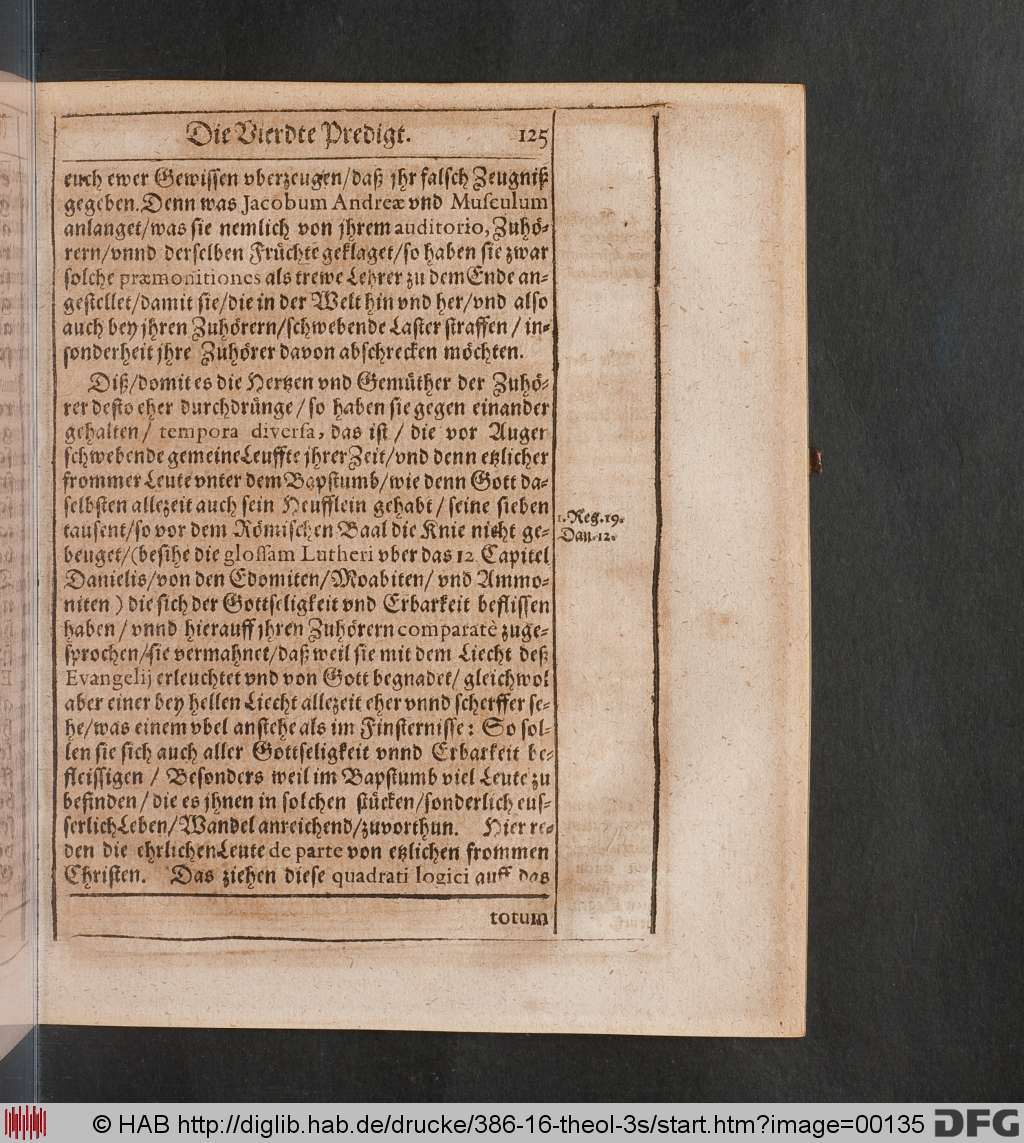 Die Vierdte Predigt. 125
euch ewer Gewissen vberzeugen/daß jhr falsch Zeugniß
gegeben. Denn was Jacobum Andreæ vnd Musculum
anlanget/was sie nemlich von jhrem auditorio, Zuhö-
rern/vnnd derselben Früchte geklaget/so haben sie zwar
solche præmonitiones als trewe Lehrer zu dem Ende an-
gestellet/damit sie/die in der Welt hin vnd her/vnd also
auch bey jhren Zuhörern/schwebende Laster straffen/in-
sonderheit jhre Zuhörer davon abschrecken möchten.
Diß/domit es die Hertzen vnd Gemüther der Zuhö-
rer desto eher durchdrünge/so haben sie gegen einander
gehalten/ tempora diversa, das ist/ die vor Augen
schwebende gemeine Leuffte jhrer Zeit/vnd denn etzlicher
frommer Leute vnter dem Bapstumb/wie denn Gott da-
selbsten allezeit auch sein Heufflein gehabt/ seine sieben
tausent/so vor dem Römischen Baal die Knie nicht ge-
beuget/(besihe die glossam Lutheri vber das 12 Capitel
Danielis/von den Edomiten/Moabiten/ vnd Ammo-
niten) die sich der Gottseligkeit vnd Erbarkeit beflissen
haben/ vnnd hierauff jhren Zuhörern comparatè zuge-
sprochen/sie vermahnet/daß weil sie mit dem Liecht deß
Evangelij erleuchtet vnd von Gott begnadet/ gleichwol
aber einer bey hellen Liecht allezeit eher vnnd scherffer se-
he/was einem vbel anstehe als im Finsternisse: So sol-
len sie sich auch aller Gottseligkeit vnnd Erbarkeit be-
fleissigen/ Besonders weil im Bapstumb viel Leute zu
befinden/ die es jhnen in solchen stücken/sonderlich eus-
serlich Leben/Wandel anreichend/zuvorthun. Hier re-
den die ehrlichen Leute de parte von etzlichen frommen
Christen. Das ziehen diese quadrati logici auff das
totum
1. Reg. 19.
Dan. 12.
© HAB http://diglib.hab.de/drucke/386-16-theol-3s/start.htm?image=00135 DFG